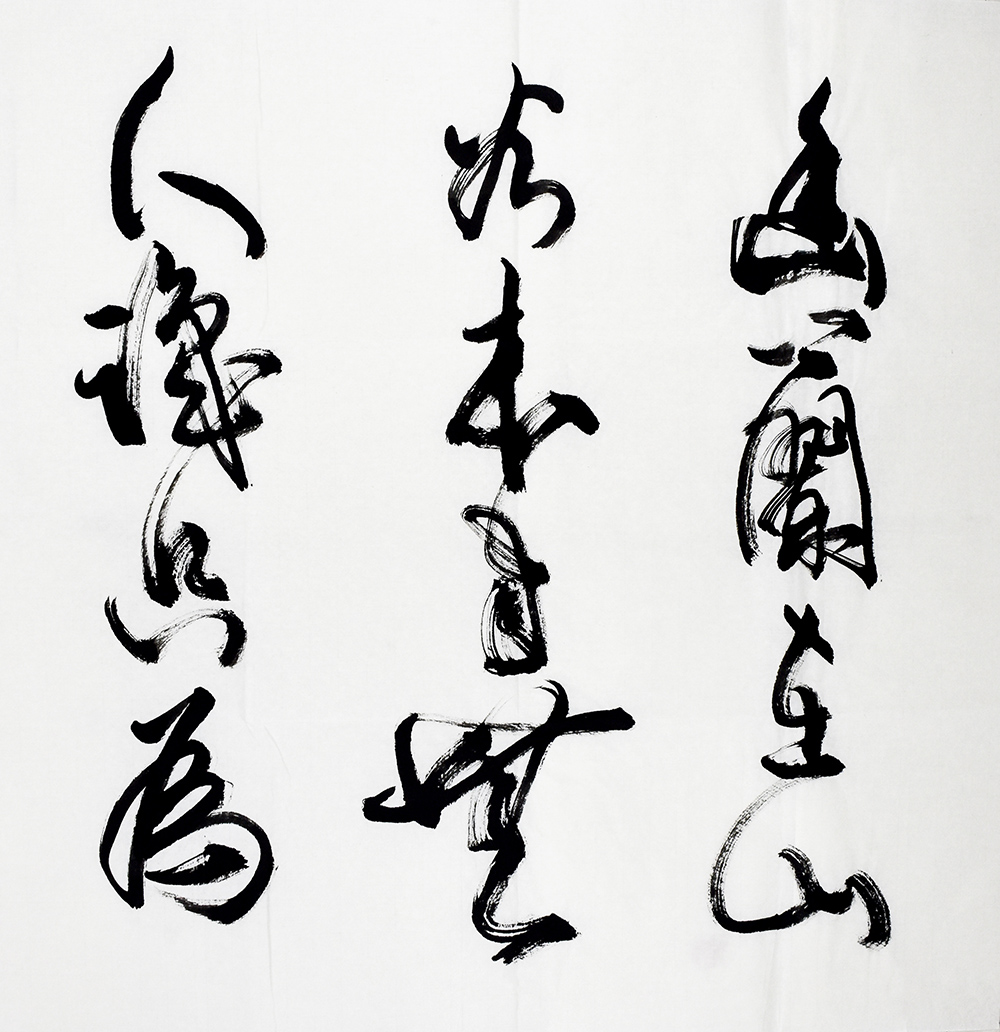 幽蘭在山
谷本自無
人識只為